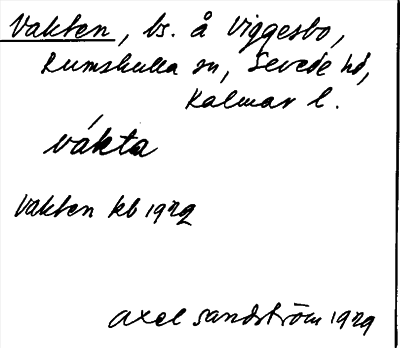 Vakten, bs. å Viggesbo,
Rumskulla sn, Sevede hd,
Kalmar l.
vákta
Vakten kb 1929
Axel Sandström 1929